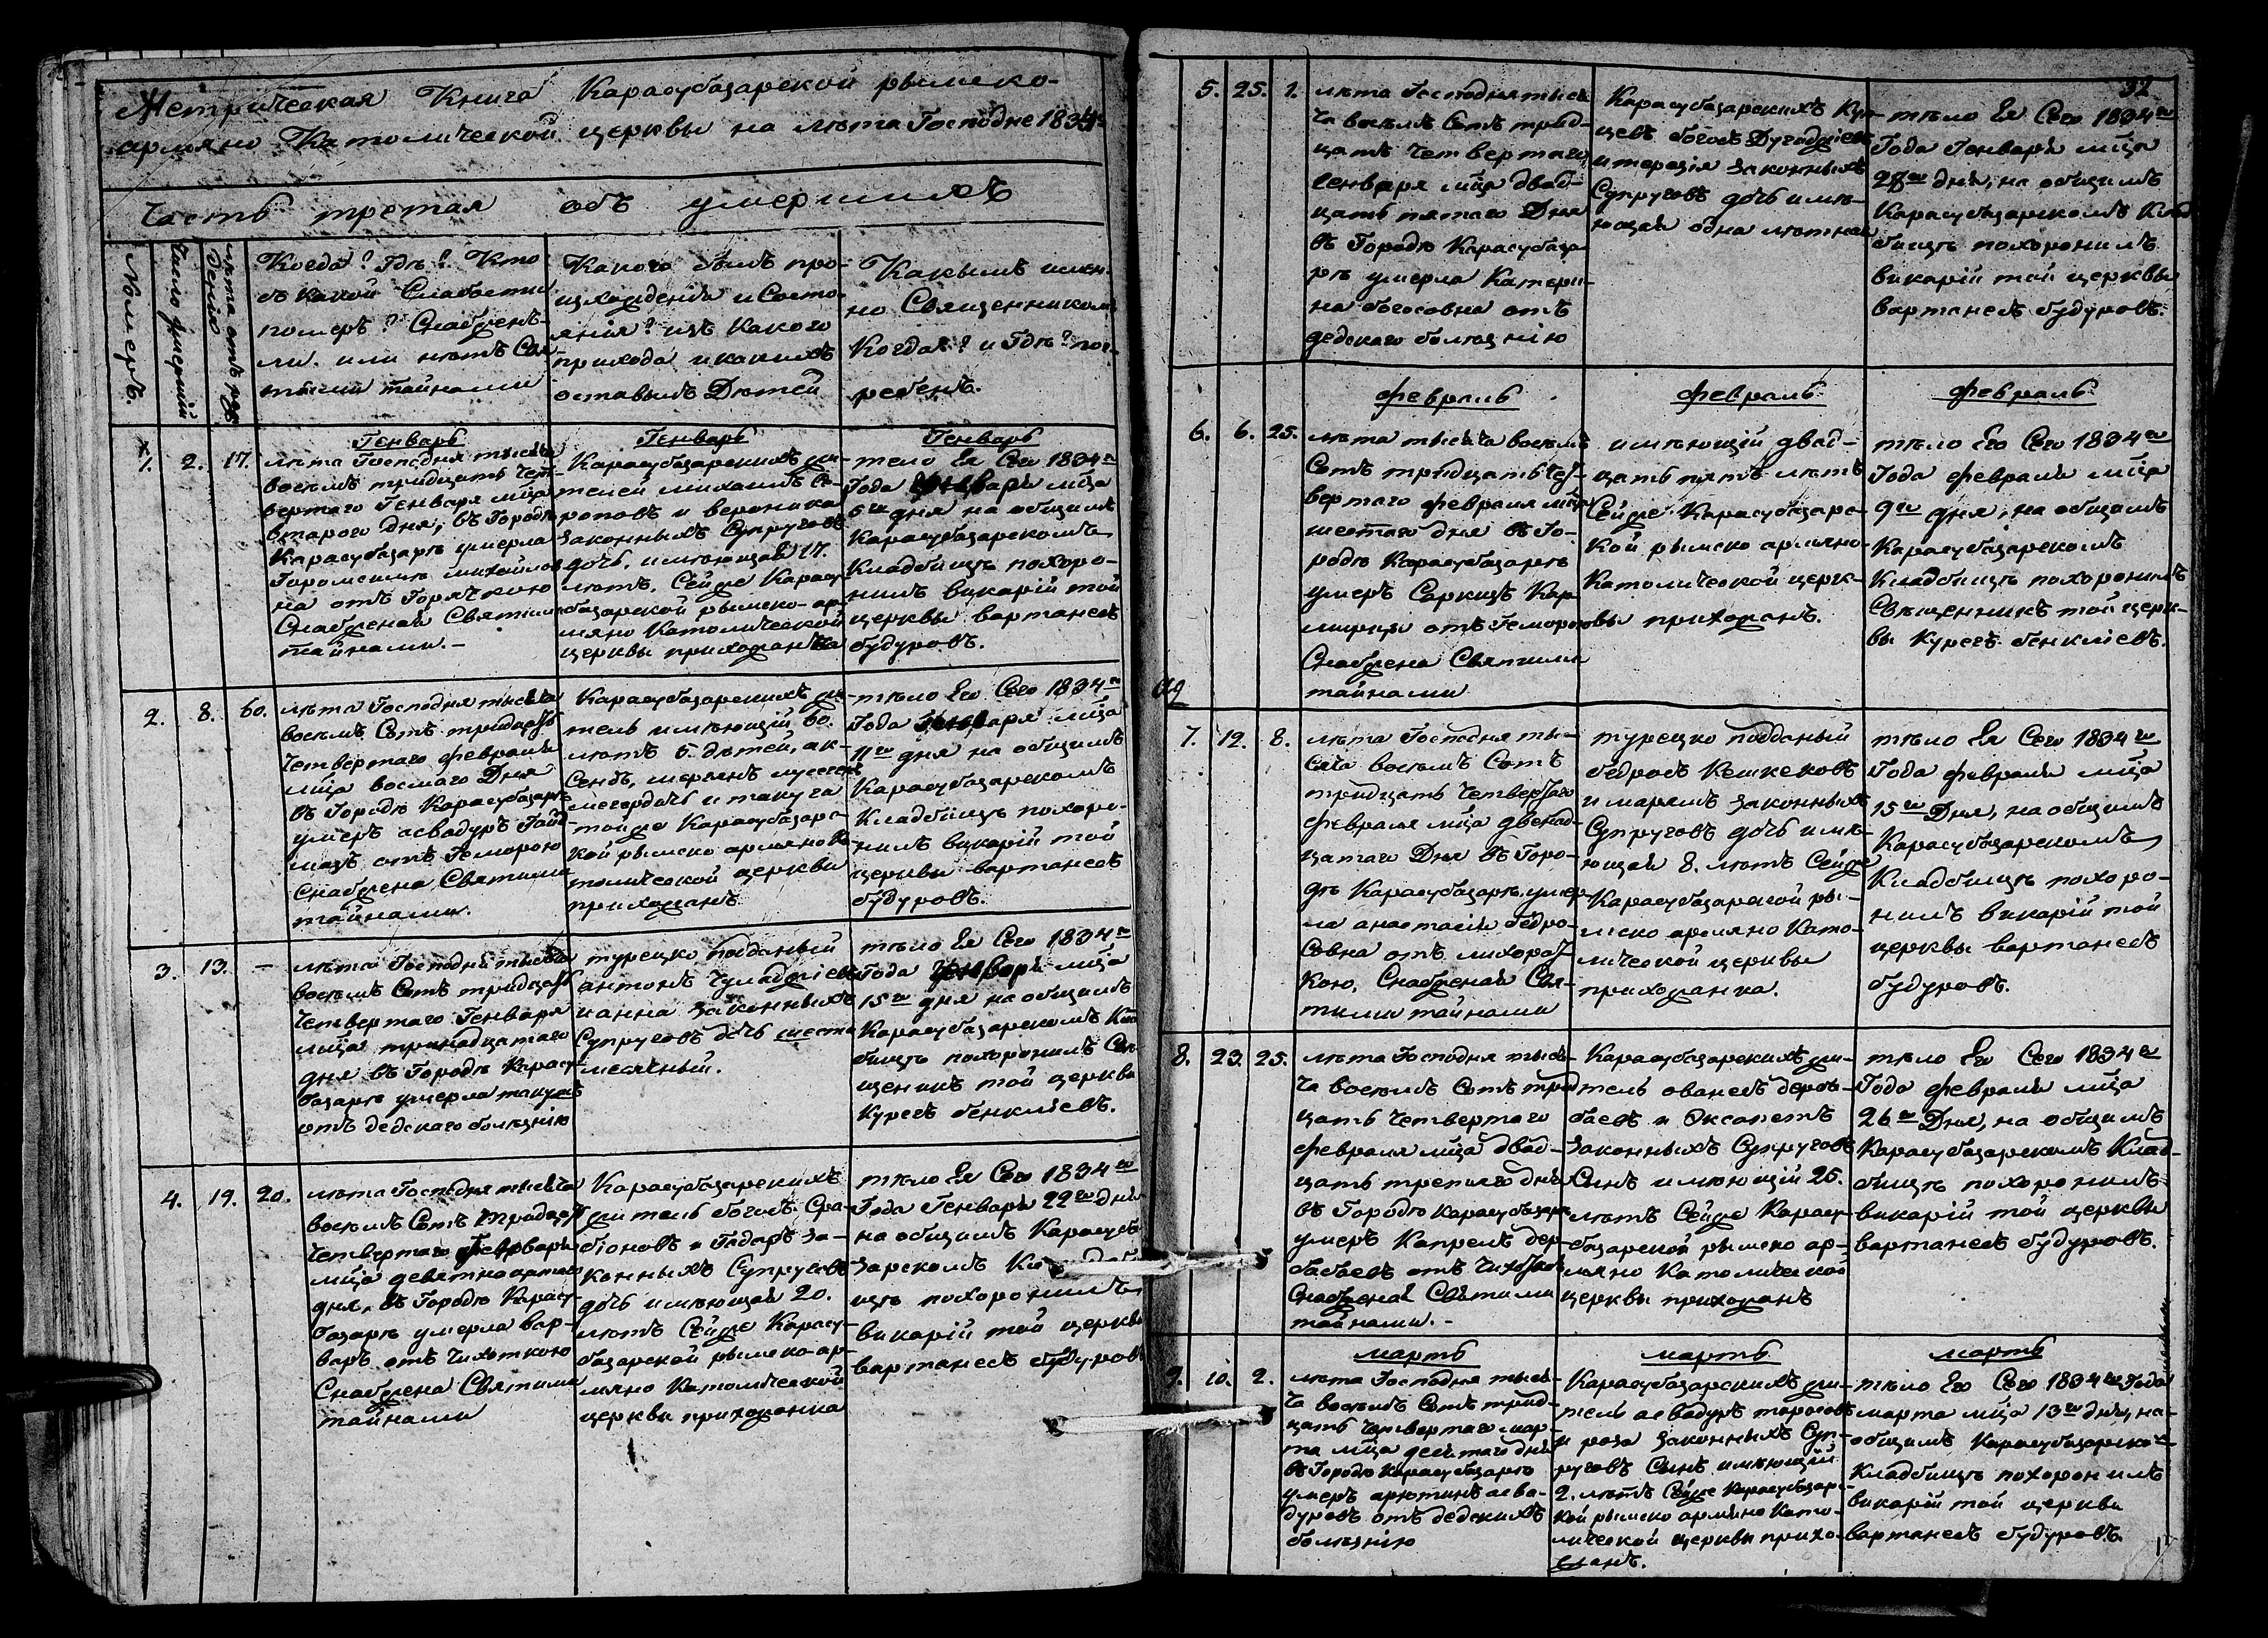 Метрическая Книга Карасубазарской рымско-
армяно Католической церквы на лѣта Господне 1834го
Часть третая объ умершихъ
Номеръ.
Число умершій
лѣта отъ рож
денія
Когда? Гдѣ? Кто
въ какой Слабости
померъ? Снабженъ-
ли. или нѣтъ Свя
тыми тайнами
Какого былъ про-
изхожденія и Состо-
янія? изъ какого
прихода и какихъ
оставылъ Дѣтей
Какымъ имен-
но Священникомъ
Когда? и Гдѣ? пог-
ребенъ.
1. 2. 17.
Генварь
лѣта Господня тысяча
восемъ тридцать чет-
вертаго Генваря мца
втораго дня, въ Городѣ
Карасубазарѣ умерла
михайлов
на отъ Горячкою
Снабженая Святими
тайнами.-
Генварь
Карасубазарскихъ жи-
телей михаилъ
и вероника
законныхъ Супруговъ
дочь, имѣющая 17.
лѣтъ. Сейже Карасу-
базарской рымско-ар-
мяно Католической
церквы прихожанка
Генварь
тело Ея Сего 1834го
Года Генваря мца
5го дня на общимъ
Карасубазарскомъ
Кладбищѣ похоро-
нилъ викарій той
церквы вартанесъ
будуровъ.
2. 8. 60.
лѣта Господня тысяча
восемъ Сотъ тридцать
Четвертаго февраля
мца восмаго Дня
въ Городѣ Карасубазарѣ
умеръ асвадуръ Гай-
мазъ отъ Геморою
Снабжена Святими
тайнами.
Карасубазарскихъ жи-
тель имѣющій 60.
лѣтъ 5. дѣтей, ак-
и такуга
тойже Карасубазарс-
кой рымско армяно Ка
толической церквы
прихожанъ
тѣло Его Сего 1834го
Года Генваря мца
11го дня на общимъ
Карасубазарскомъ
Кладбищѣ похоро-
нилъ викарій той
церквы вартанесъ
будуровъ.
3. 13. -
лѣта Господня тысяча
восемъ Сотъ тридцать
Четвертаго Генваря
мца тринадцатаго
дня въ Городѣ Карасу-
базарѣ умерла
отъ дедскаго болѣзнію
турецко поданый
антонъ
и анна законныхъ
Супруговъ дочь шести
месячный.
тѣло Ея Сего 1834го
Года Генваря мца
15го дня на общимъ
Карасубазарскомъ Клад
бищѣ похоронилъ Свя-
щеникъ той церквы
Курегъ бенклiевъ.
4. 19. 20.
лѣта Господня тысяча
восемъ Сотъ тридцать
Четвертаго Генваря
мца девятнацатаго
дня, въ Городѣ Карасу-
базарѣ умерла вар-
варъ отъ Чихоткою
Снабжена Святими
тайнами
Карасубазарскихъ
житель богосъ Сра-
бiоновъ и за-
конныхъ Супруговъ
дочь имѣющая 20.
лѣтъ Сейже Карасу-
базарской рымско-ар-
мяно Католической
церквы прихожанка
тѣло Ея Сего 1834го
Года Генваря 22го дня
на общимъ Карасуба
зарскомъ Кладби
щѣ похоронилъ
викарій той церквы
вартанесъ будуровъ
32
5. 25. 1.
лѣта Господня тыся
ча восемъ Сотъ трид-
цать Четвертаго
Генваря мца двад-
цать пятаго Дня
въ Городѣ Карасубаза-
рѣ умерла Катери-
на богосовна отъ
дедскаго болѣзнію
Карасубазарскихъ Куп-
цевъ богосъ
и терезія законныхъ
Супруговъ дочь имѣ-
ющая одна лѣтная
тѣло Ея Сего 1834го
Года Генваря мца
28го дня, на общимъ
Карасубазарскомъ Клад
бищѣ похоронилъ
викарій той церквы
вартанесъ будуровъ.
февраль февраль февраль
6. 6. 25.
лѣта тысяча восемъ
Сотъ тридцать чет-
вертаго февраля мца
шестаго дня въ Го-
родѣ Карасубазарѣ
умеръ Саркизъ
отъ Гемороювы
Снабжена Святими
тайнами
имѣющій двад-
цать пять лѣтъ
Сейже Карасубазарс-
кой рымско армяно-
Католической церк-
вы прихожанъ.
тѣло Его Сего 1834го
Года февраля мца
9го дня, на общимъ
Карасубазарскомъ
Кладбищѣ похоронилъ
Священникъ той церк-
вы Курегъ бенклiевъ.
7. 12. 8.
лѣта Господня ты-
сяча восемъ Сотъ
тридцать Четвертаго
февраля мца двенад-
цатаго Дня въ Горо-
дѣ Карасубазарѣ, умер
ла анастасія бедро-
совна отъ лихорад-
кою, Снабженая Свя-
тими тайнами
турецко поданый
бедросъ Кешкековъ
и мариамъ законныхъ
Супруговъ дочь имѣ-
ющая 8. лѣтъ Сейже
Карасубазарской ры-
мско армяно Като-
лической церквы
прихожанка.
тѣло Ея Сего 1834го
Года февраля мца
15го Дня, на общимъ
Карасубазарскомъ
Кладбищѣ похоро-
нилъ викарій той
церквы вартанесъ
будуровъ.
8. 23. 25.
лѣта Господня тыся-
ча восемъ Сотъ трид
цать Четвертаго
февраля мца двад-
цать третяго дня
въ Городѣ Карасубазарѣ
умеръ Капрелъ дер-
бабаевъ отъ Чихоткою
Снабженая Святими
тайнами.-
Карасубазарскихъ жи-
тель ованесъ дерба-
баевъ и Эксапетъ
законныхъ Супруговъ
Сынъ имѣющій 25.
лѣтъ Сейже Карасу-
базарской рымско ар-
мяно Католической
церквы прихожанъ
тѣло Его Сего 1834го
Года февраля мца
26го Дня, на общимъ
Карасубазарскомъ Клад-
бищѣ похоронилъ
викарій той церквы
вартанесъ будуровъ.
мартъ мартъ мартъ
9. 10. 2.
лѣта Господня тыся-
ча восемъ Сотъ трид-
цать Четвертаго мар-
та мца десятаго дня
въ Городѣ Карасубазарѣ
умеръ арютинъ асва-
дуровъ отъ дедскихъ
болѣзнію
Карасубазарскихъ жи-
тель асвадуръ торосовъ
и роза законныхъ Суп-
руговъ Сынъ имѣющій
2. лѣтъ Сейже Карасубазарс-
кой рымско армяно Като-
лической церквы прихо-
жанъ.
тѣло Его Сего 1834го Года
марта мца 13го дня, на
общимъ Карасубазарско
Кладбищѣ похоронилъ
викарій той церквы
вартанесъ будуровъ.